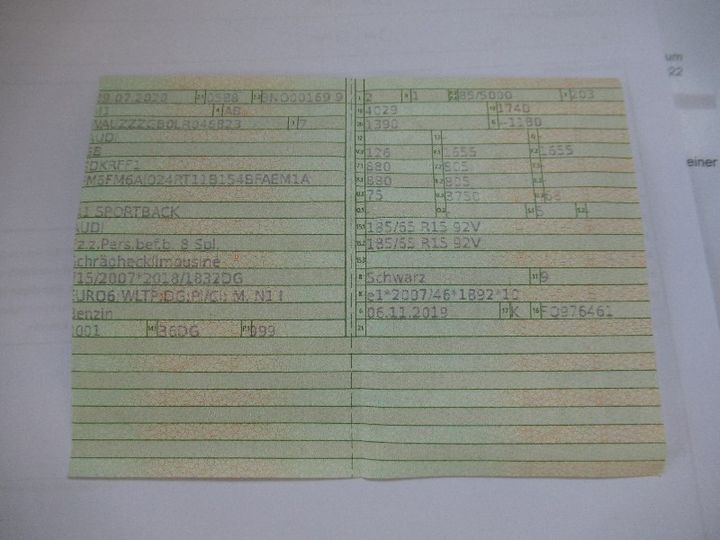 9.07.2020 0588 BNO00169 9
M1 AB
WAUZZZGB0LR046823 7
AUDI
GB
A1 SPORTBACK
AUDI
Fz.z.Pers.bef.b. 8 Spl.
Schräghecklimousine
715/2007*2018/1832DG
EURO6;WLTP;DG;PI/CI; M, N1 I
Benzin
0001 36DG 999
2 1 85/5000 203
4029 1740
1390 -1180
126 1655 1655
880 805
880 805
75 8750 68
- - 5 -
185/65 R15 92V
185/65 R15 92V
Schwarz 9
e1*2007/46*1892*10
06.11.2019 K FO976461
um
22
einer